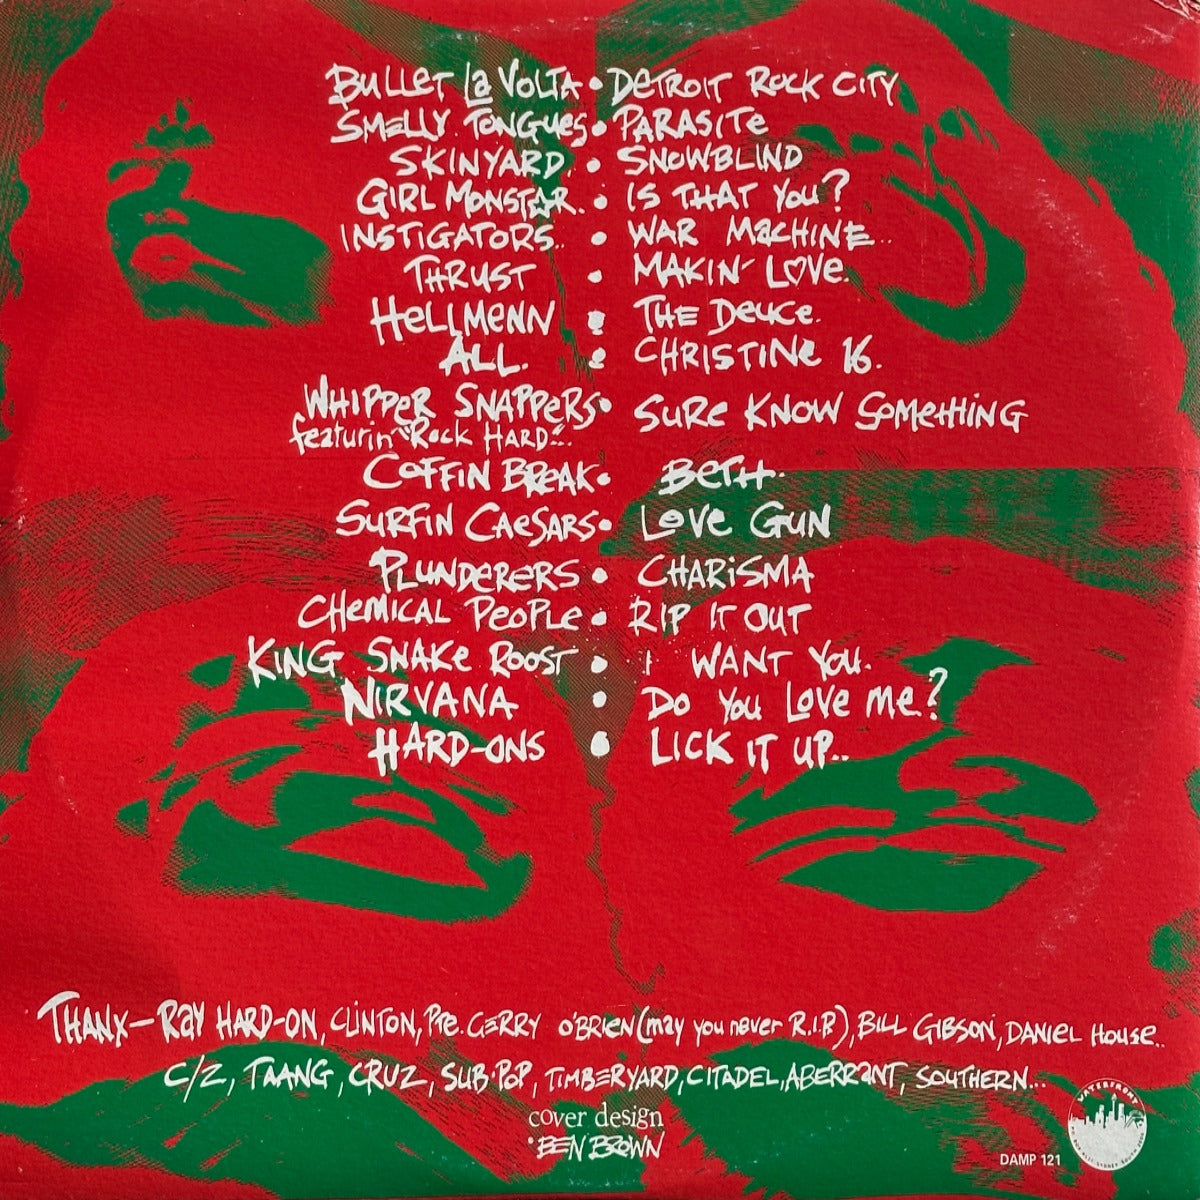 BULLET La VOLTA • DETROIT ROCK CITY
SMELLY TONGUES • PARASITE
SKINYARD • SNOWBLIND
GIRL MONSTAR. • IS THAT YOU?
INSTIGATORS.. • WAR MACHINE..
THRUST • MAKIN' LOVE.
HELLMENN • THE DEUCE.
ALL. • CHRISTINE 16.
WHIPPER SNAPPERS • SURE KNOW SOMETHING
featurin "ROCK HARD"...
COFFIN BREAK • BETH.
SURFIN CAESARS • LOVE GUN
PLUNDERERS • CHARISMA
CHEMICAL PEOPLE • RIP IT OUT
KING SNAKE ROOST • I WANT YOU.
NIRVANA • DO YOU LOVE ME?
HARD-ONS • LICK IT UP..
THANX — RAY HARD-ON, CLINTON, Pte. GERRY O'BRIEN (may you never R.I.P.), BILL GIBSON, DANIEL HOUSE..
C/Z, TAANG, CRUZ, SUB·POP, TIMBERYARD, CITADEL, ABERRANT, SOUTHERN...
cover design
BEN BROWN
WATERFRONT
DAMP 121